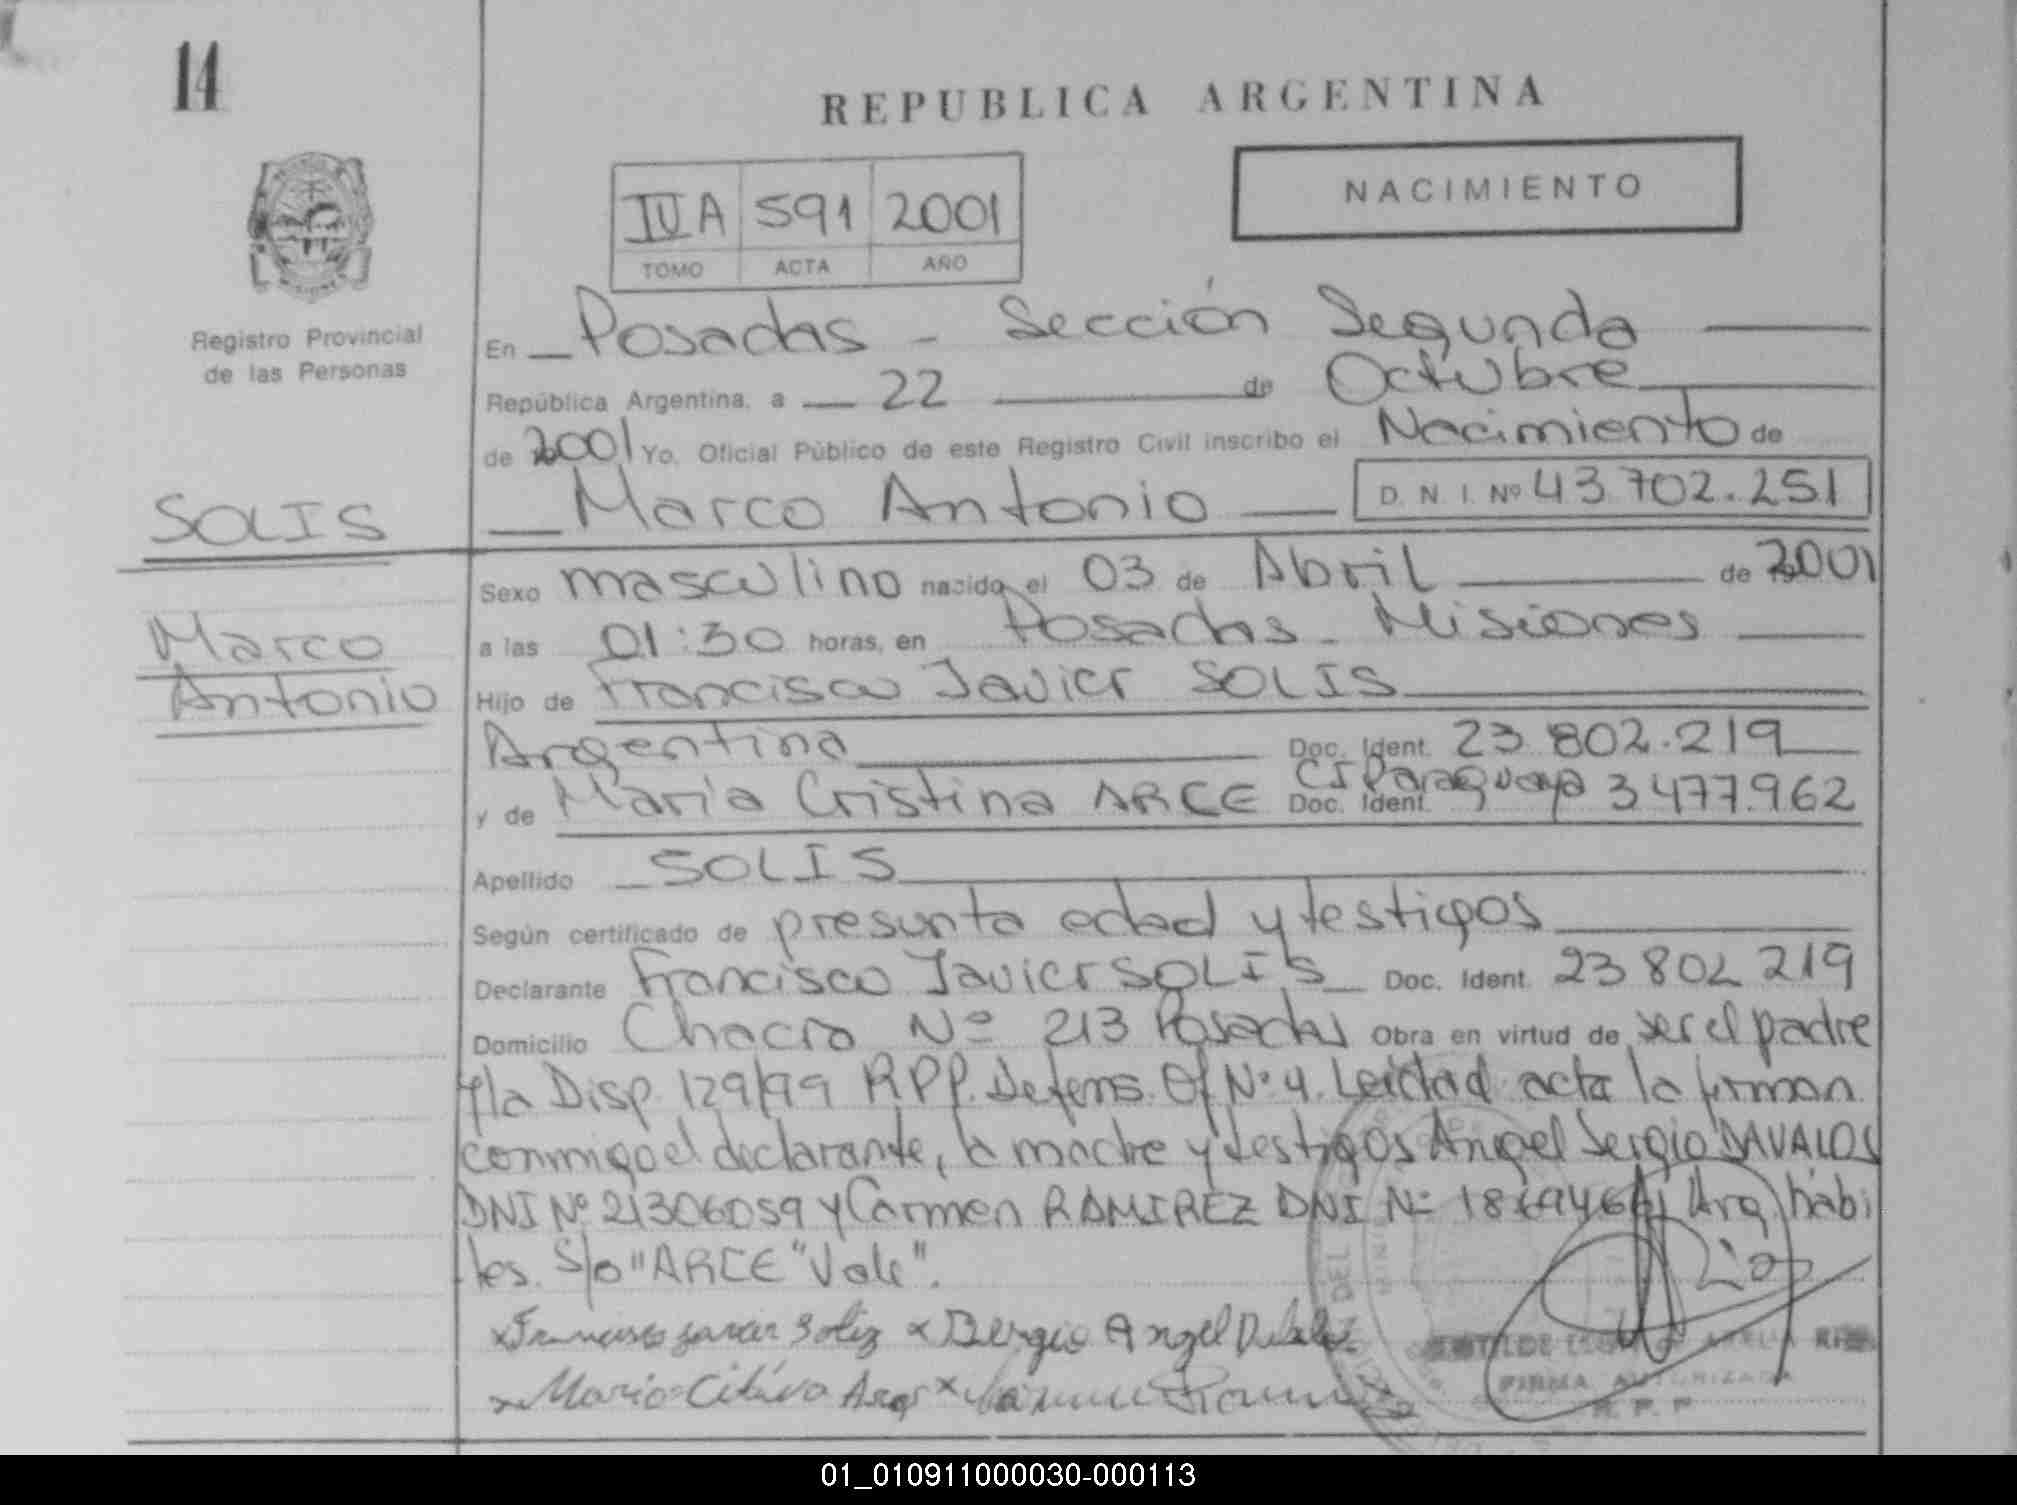 14
REPUBLICA ARGENTINA
NACIMIENTO
IVA 591 2001
TOMO ACTA AÑO
Registro Provincial
de las Personas
En Posadas - Sección Segunda
República Argentina, a 22 de Octubre
de 2001 Yo, Oficial Público de este Registro Civil inscribo el Nacimiento de
Marco Antonio D. N. I. Nº 43.702.251
SOLIS
Marco
Antonio
Sexo masculino nacido el 03 de Abril de 2001
a las 01:30 horas, en Posadas - Misiones
Hijo de Francisco Javier SOLIS
Argentina Doc. Ident. 23.802.219
y de María Cristina ARCE Doc. Ident. CI Paraguaya 3477.962
Apellido SOLIS
Según certificado de presunta edad y testigos
Declarante Francisco Javier SOLIS Doc. Ident. 23 802 219
Domicilio Chacra Nº 213 Posadas Obra en virtud de ser el padre
y la Disp. 129/99 RPP. Defens. Of Nº 4. Leida el acta la firman
conmigo el declarante, la madre y testigos Angel Sergio DAVALOS
DNI Nº 21306059 y Carmen RAMIREZ DNI Nº Arg. habi
les. S/o "ARCE "Vale".
x Francisco Javier Soliz x Sergio Angel
x Maria
FIRMA AUTORIZADA
R. P. P
01_010911000030-000113